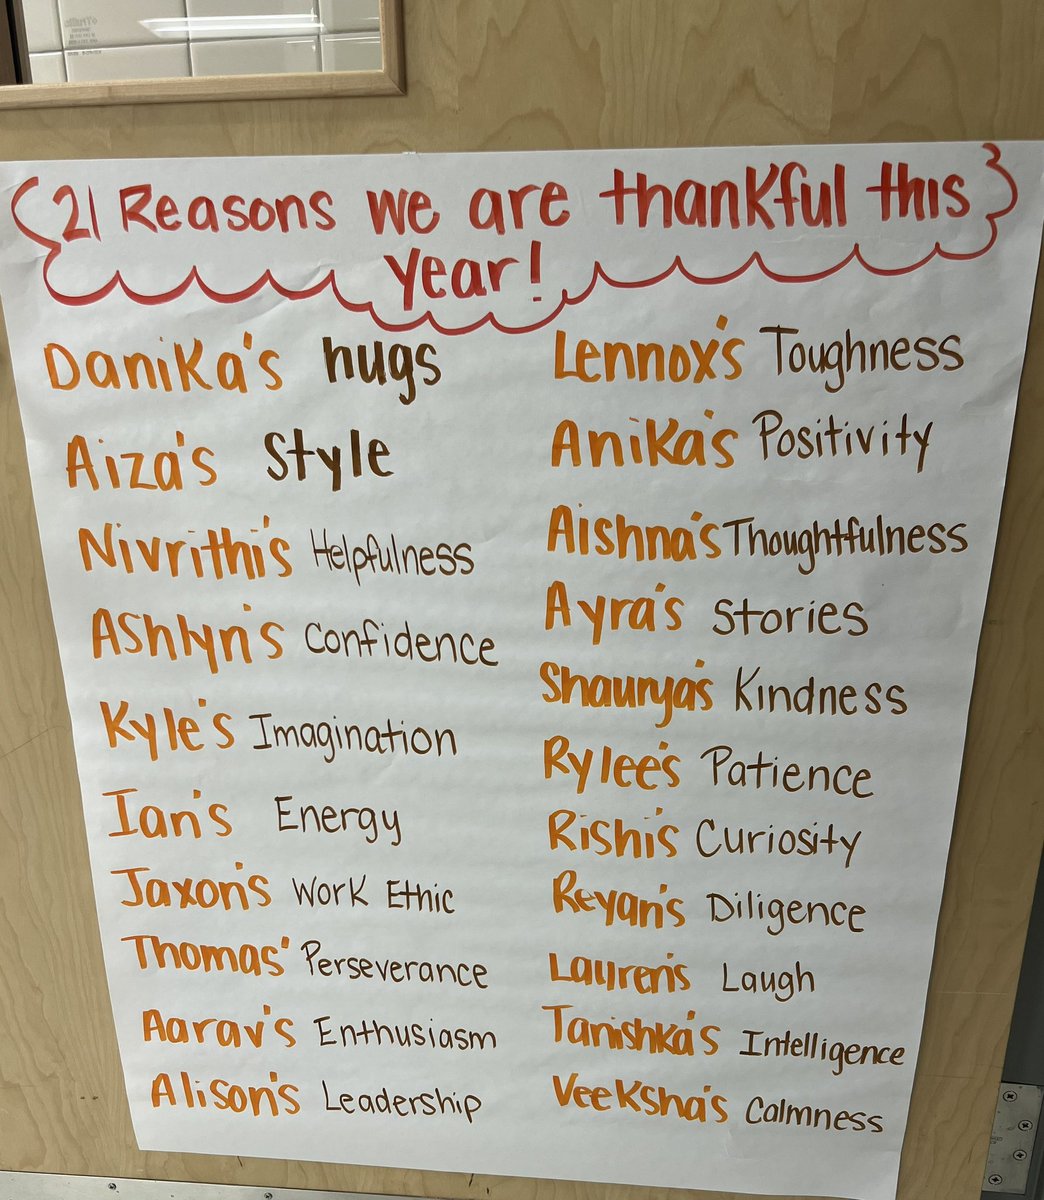 21 Reasons we are thankful this
year!
Danika's hugs
Aiza's Style
Nivrithi's Helpfulness
Ashlyn's Confidence
Kyle's Imagination
Ian's Energy
Jaxon's Work Ethic
Thomas' Perseverance
Aarav's Enthusiasm
Alison's Leadership
Lennox's Toughness
Anika's Positivity
Aishna's Thoughtfulness
Ayra's Stories
Shaurya's Kindness
Rylee's Patience
Rishi's Curiosity
Reyan's Diligence
Lauren's Laugh
Tanishka's Intelligence
Veeksha's Calmness